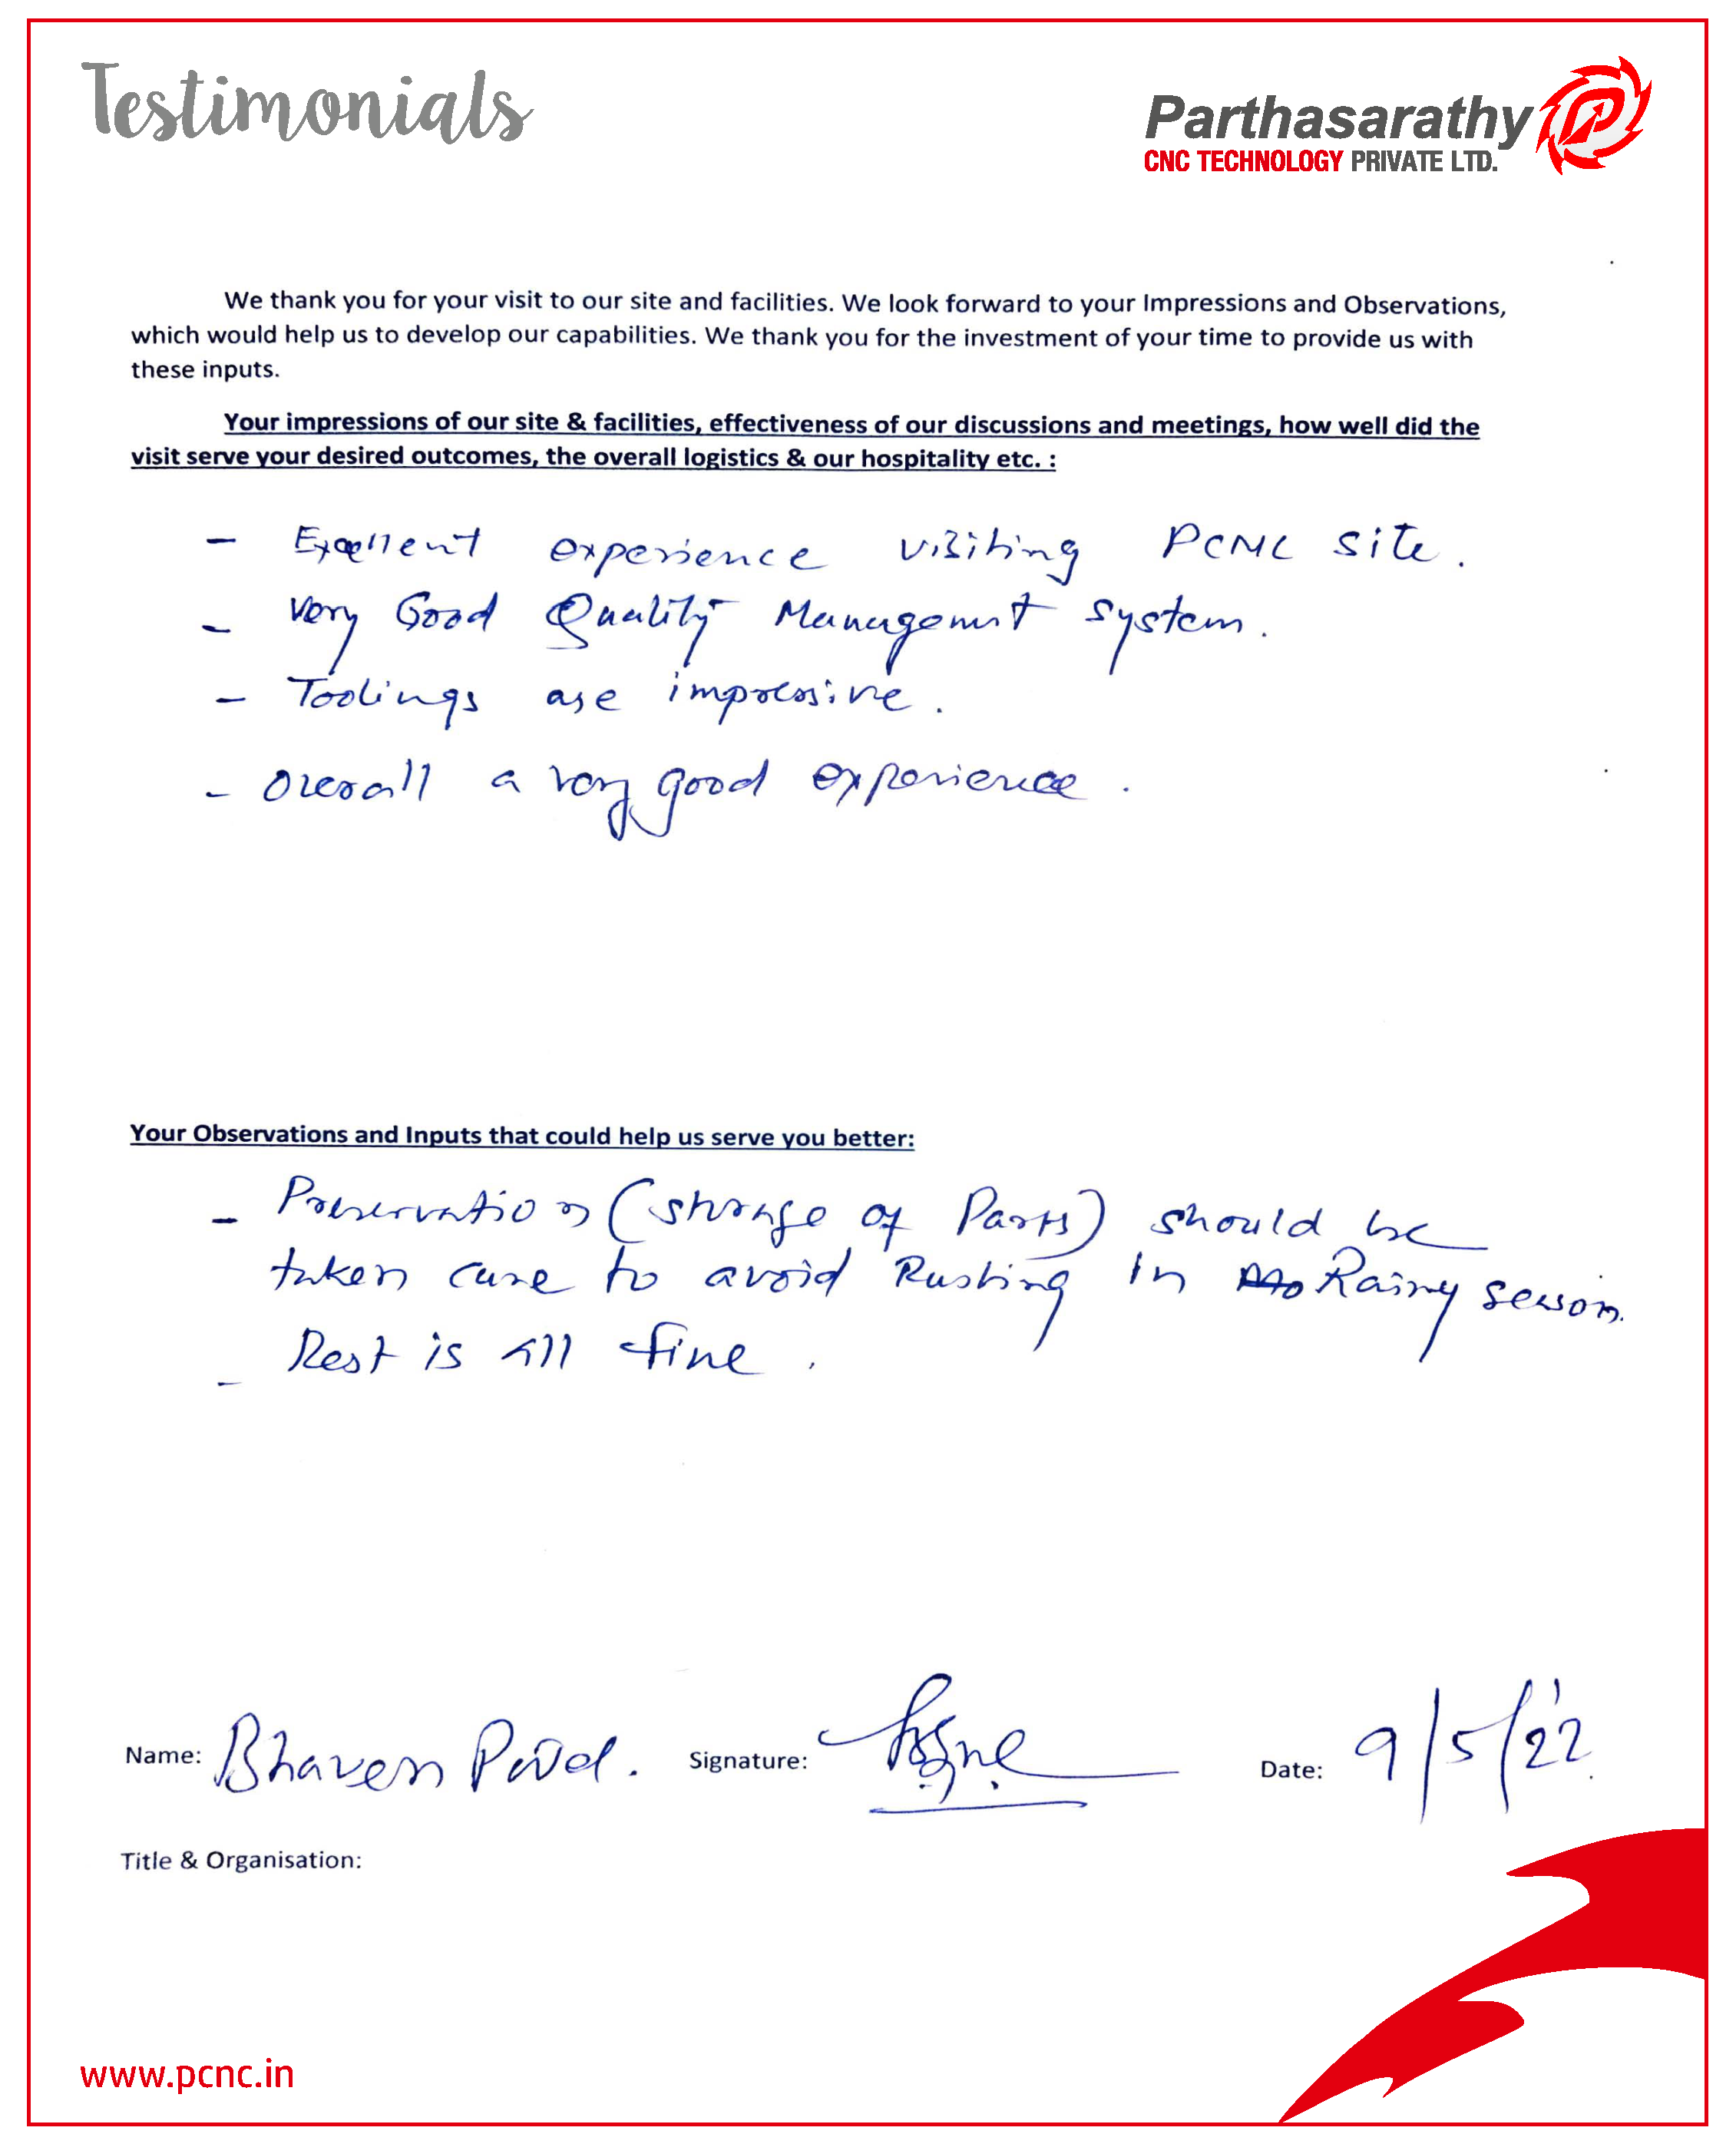 Testimonials
Parthasarathy
CNC TECHNOLOGY PRIVATE LTD.
We thank you for your visit to our site and facilities. We look forward to your Impressions and Observations,
which would help us to develop our capabilities. We thank you for the investment of your time to provide us with
these inputs.
Your impressions of our site & facilities, effectiveness of our discussions and meetings, how well did the
visit serve your desired outcomes, the overall logistics & our hospitality etc. :
- Excellent experience visiting PCNC site.
- Very Good Quality Management system.
- Toolings are impressive.
- Overall a very good experience.
Your Observations and Inputs that could help us serve you better:
- Preservation (storage of Parts) should be
taken care to avoid Rusting in Rainy season.
- Rest is all fine.
Name: Bhaven Signature: Date: 9/5/22
Title & Organisation:
www.pcnc.in